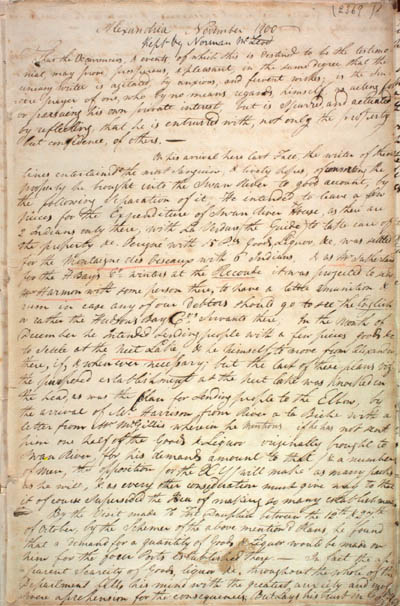 Alexandria November 1800
Kept by Norman McLeod
That the Occurrences, & events of which this is destined to be the testimo
nial may prove prosperous, & pleasant in the same degree that the
uneasy Writer is agitated by anxious, and fervent wishes; is the sin
cere prayer of one, who by no means regards himself as acting for
or pursuing his own private interest, but is spurred and actuated
by reflecting that he is entrusted with, not only the property
but confidence, of others.—
On his arrival here last Fall the writer of these
lines entertained the most sanguine, & lively hopes, of turning the
property he brought into the Swan River to good account, by
the following Separation of it; He intended to leave a few
pieces for the Expenditure of Swan River House, as there are
2 Indians only there, with La Verdure the Guide to take care of
the property &c. Perigne with 15 Ps. Goods, Liquor, &c, was settled
for the Montagne des biseaux with 6 Indians & as Mr Sutherland
for the H. Bays Co. winters at the Recoude it was projected to
Mr Harmon with some person there, to have a little ammunition &
rum in case any of our debtors should go to see the English
or rather the Hudsons Bay Co. Servants there In the Month of
December he intended sending people with a few pieces goods &c
to settle at the Next Lake, & he himself to move from Alexandria
there, if, & whenever necessary; but the last of these plans viz
the proposed establishment at the next lake was knocked on
the head, as was the plan for sending people to the Elbow, by
the arrival of Mr. Harrison from River a la Biche with a
letter from Mr McGillis wherein he mentions if he has not sent
him one half of the Goods & Liquor originally brought to
Swan River, for his demands amount to that & a number
of men, the opposition for the X Y will make as many packs
as he will, & as every other consideration must give way to this
it of course superseded the Idea of making so many establishments
By the Visit made to Fort Dauphin between the 10th & 29th
of October, by the Schemer of the above mentiond plans, he found
that a demand for a quantity of Goods & Liquor would be made on
him for the four Posts Established there — In fact the ap
parent Scarcity of Goods, Liquor &c, throughout the whole of this
Department fills his mind with the greatest anxiety and
severe apprehension for the consequences. But lays his trust in